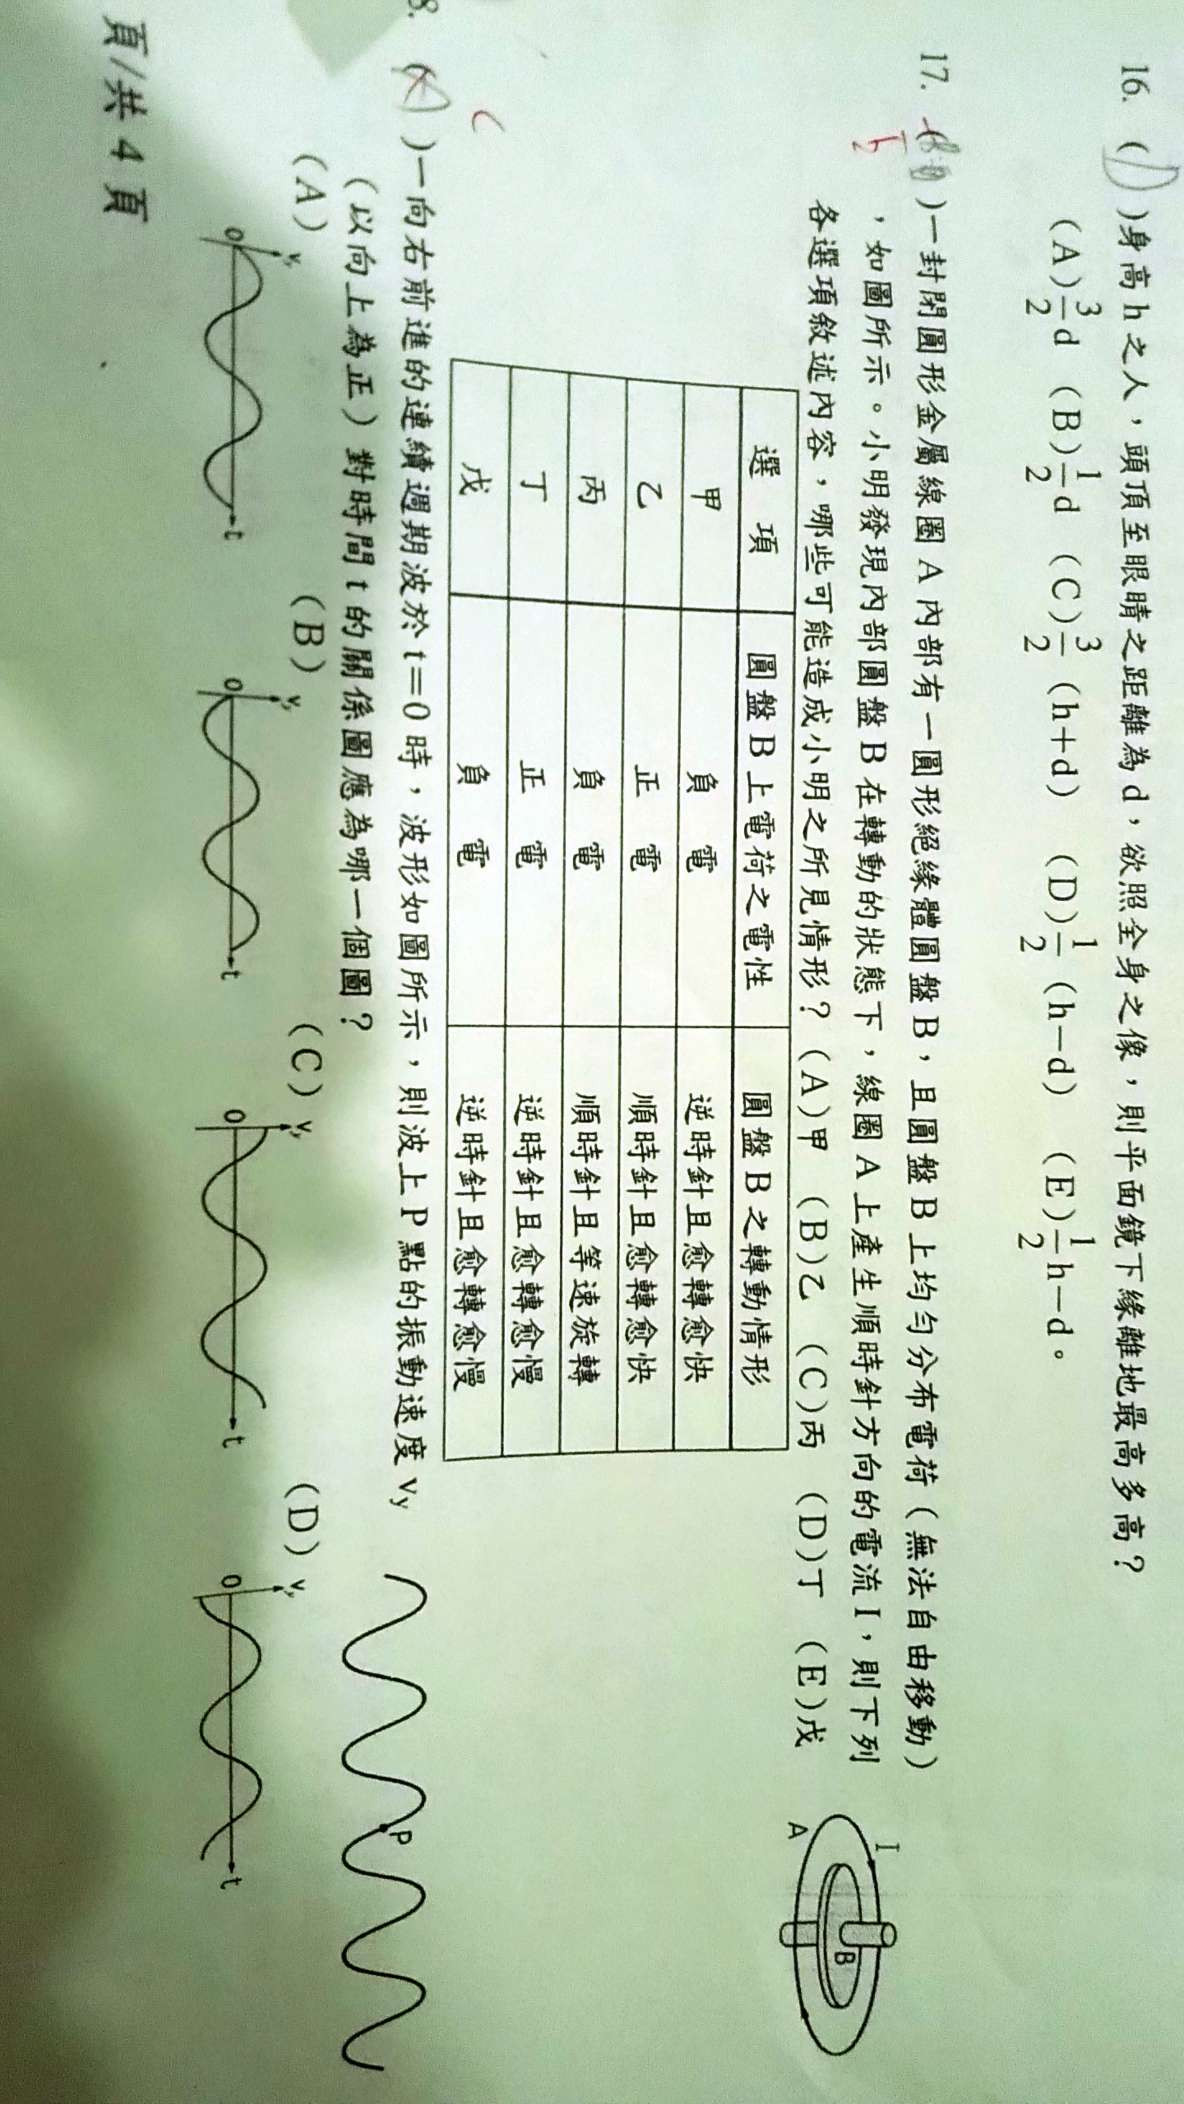 16. (D)身高h之人，頭頂至眼睛之距離為d，欲照全身之像，則平面鏡下緣離地最高多高？
(A)3/2 d (B)1/2 d (C)3/2 (h+d) (D)1/2 (h－d) (E)1/2 h－d。
17. ( )一封閉圓形金屬線圈A內部有一圓形絕緣體圓盤B，且圓盤B上均勻分布電荷（無法自由移動）
，如圖所示。小明發現內部圓盤B在轉動的狀態下，線圈A上產生順時針方向的電流I，則下列
各選項敘述內容，哪些可能造成小明之所見情形？(A)甲 (B)乙 (C)丙 (D)丁 (E)戊
I
A
B
選項 圓盤B上電荷之電性 圓盤B之轉動情形
甲 負電 逆時針且愈轉愈快
乙 正電 順時針且愈轉愈快
丙 負電 順時針且等速旋轉
丁 正電 逆時針且愈轉愈慢
戊 負電 逆時針且愈轉愈慢
C
8. ( )一向右前進的連續週期波於t＝0時，波形如圖所示，則波上P點的振動速度vy
（以向上為正）對時間t的關係圖應為哪一個圖？
P
(A) (B) (C) (D)
vy vy vy vy
0 t 0 t 0 t 0 t
頁/共4頁